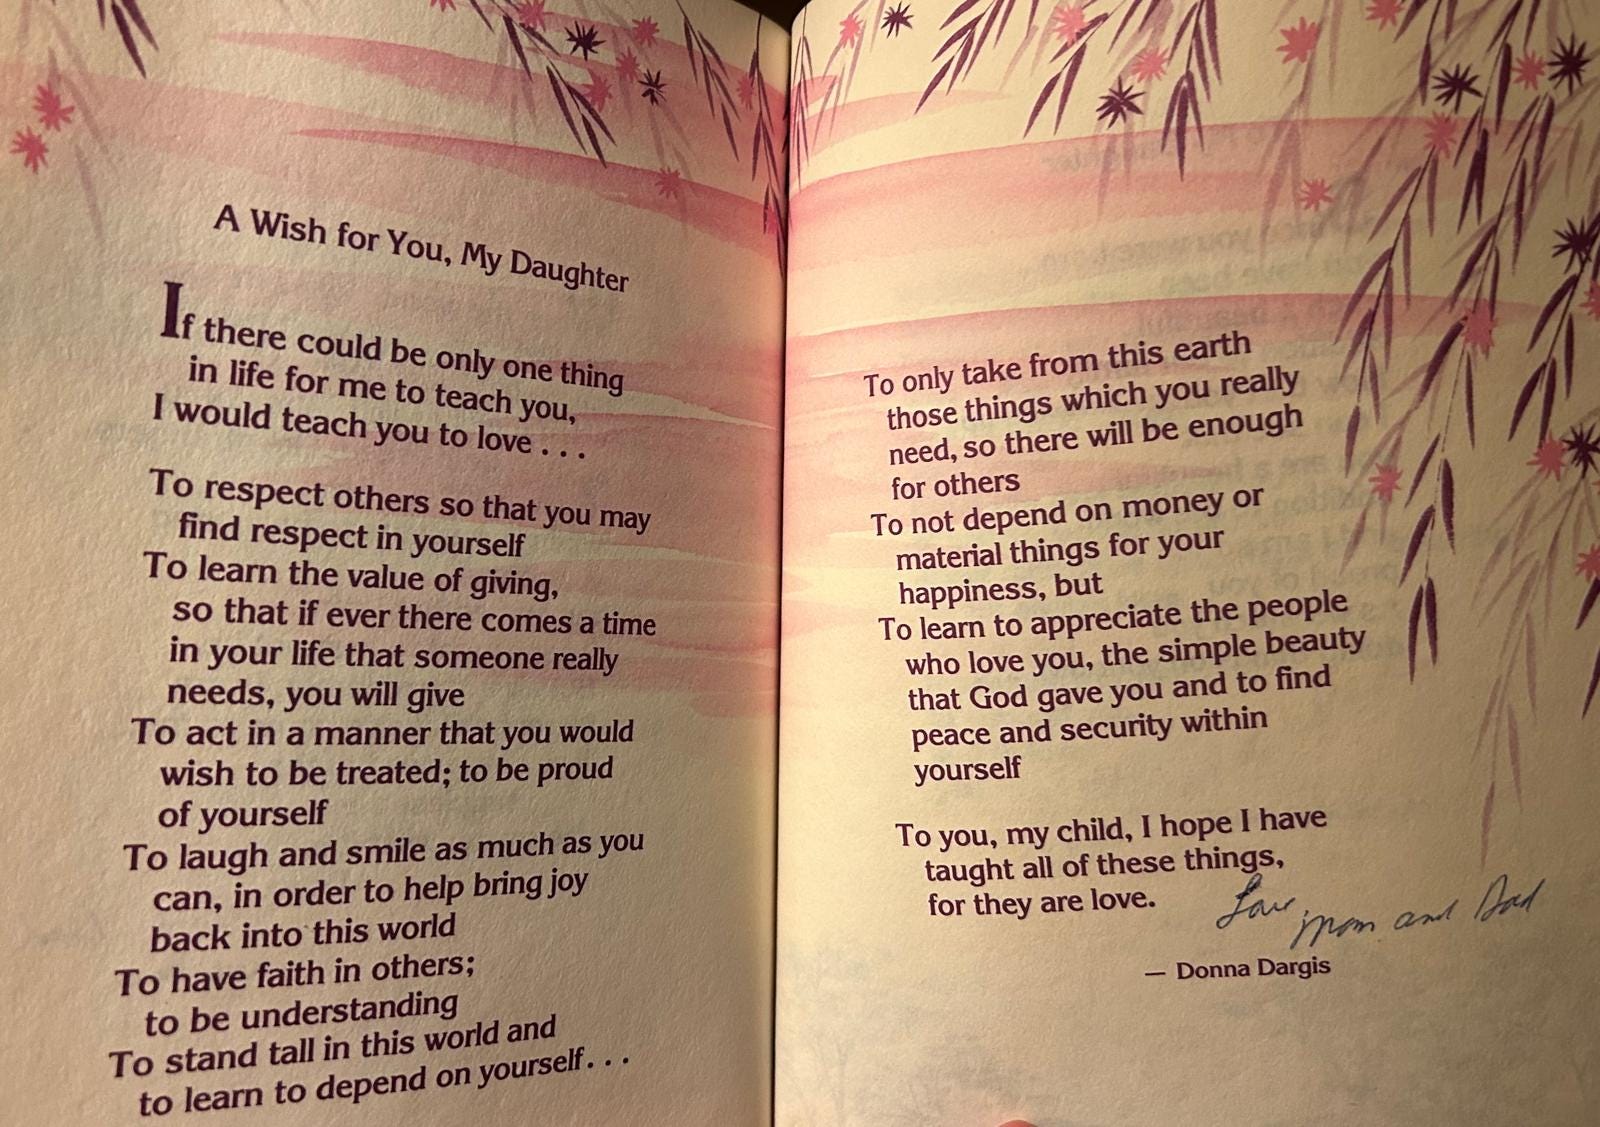 A Wish for You, My Daughter
If there could be only one thing
in life for me to teach you,
I would teach you to love . . .
To respect others so that you may
find respect in yourself
To learn the value of giving,
so that if ever there comes a time
in your life that someone really
needs, you will give
To act in a manner that you would
wish to be treated; to be proud
of yourself
To laugh and smile as much as you
can, in order to help bring joy
back into this world
To have faith in others;
to be understanding
To stand tall in this world and
to learn to depend on yourself . . .
To only take from this earth
those things which you really
need, so there will be enough
for others
To not depend on money or
material things for your
happiness, but
To learn to appreciate the people
who love you, the simple beauty
that God gave you and to find
peace and security within
yourself
To you, my child, I hope I have
taught all of these things,
for they are love.
Love, Mom and Dad
— Donna Dargis